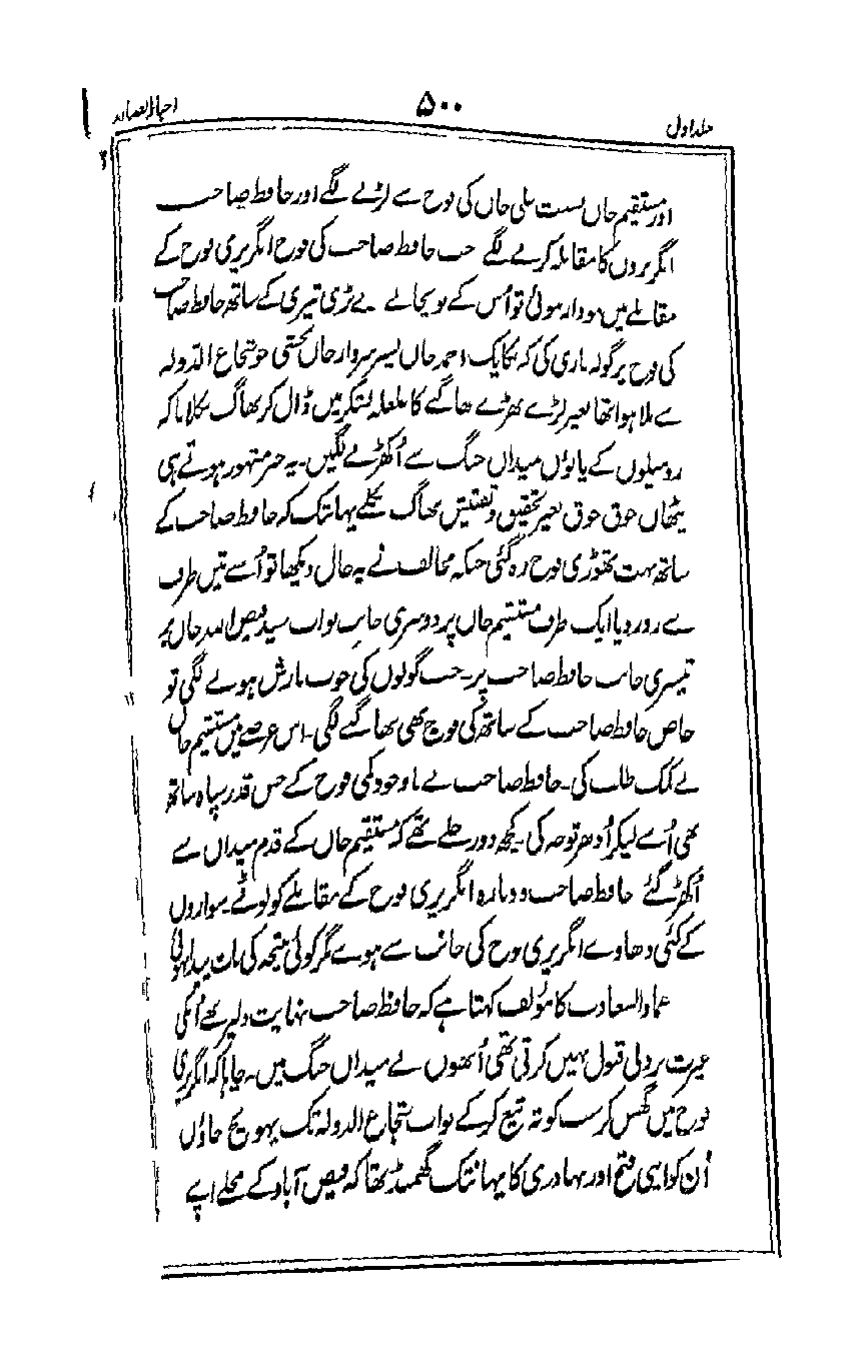 جلد اول ۵۰۰ اخبار الصنادید
اور مستقیم خاں بسنت علی خاں کی فوج سے لڑنے لگے اور حافظ صاحب
انگریزوں کا مقابلہ کرنے لگے جب حافظ صاحب کی فوج انگریزی فوج کے
مقابلے میں نمودار ہوئی تو اُس کے توپخانے نے بڑی تیزی کے ساتھ حافظ صاحب
کی فوج پر گولہ باری کی کہ یکایک احمد خاں پسر سردار خاں بخشی جو شجاع الدولہ
سے ملا ہوا تھا بغیر لڑے بھڑے بھاگنے کا غلغلہ لشکر میں ڈال کر بھاگ نکلا تاکہ
روہیلوں کے پانوں میدان جنگ سے اُکھڑنے لگیں۔ یہ خبر مشہور ہوتے ہی
پٹھان جوق جوق بغیر تحقیق و تفتیش بھاگ نکلے یہانتک کہ حافظ صاحب کے
ساتھ بہت تھوڑی فوج رہ گئی جبکہ مخالف نے یہ حال دیکھا تو اُسنے تین طرف
سے زور دیا ایک طرف مستقیم خاں پر دوسری جانب نواب سید فیض اللہ خاں پر
تیسری جانب حافظ صاحب پر۔ جب گولوں کی خوب بارش ہونے لگی تو
خاص حافظ صاحب کے ساتھ کی فوج بھی بھاگنے لگی۔ اس عرصے میں مستقیم خاں
نے کمک طلب کی۔ حافظ صاحب نے باوجود کمی فوج کے جس قدر سپاہ ساتھ
تھی اُسے لیکر اُدھر توجہ کی۔ کچھ دور چلے تھے کہ مستقیم خاں کے قدم میدان سے
اُکھڑ گئے حافظ صاحب دوبارہ انگریزی فوج کے مقابلے کو لوٹے۔ سواروں
کے کئی دھاوے انگریزی فوج کی جانب سے ہوے مگر کوئی نتیجہ کی بات پیدا نہوئی
عماد السعادت کا مؤلف کہتا ہے کہ حافظ صاحب نہایت دلیر تھے اُنکی
غیرت بزدلی قبول نہیں کرتی تھی اُنھوں نے میدان جنگ میں۔ چاہا کہ انگریزی
فوج میں گھس کر سب کو تہ تیغ کرکے نواب شجاع الدولہ تک پہونچ جاؤں
اُن کو اپنی فتح اور بہادری کا یہانتک گھمنڈ تھا کہ فیض آباد کے محلے اپنے